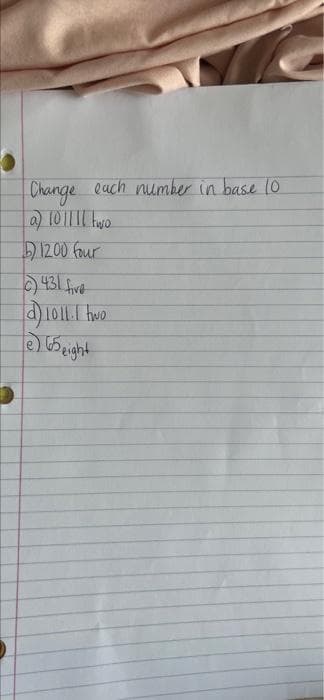 Change each number in base 10
a) 101111 two
b) 1200 four
c) 431 five
d) 1011.1 two
e) 65 eight